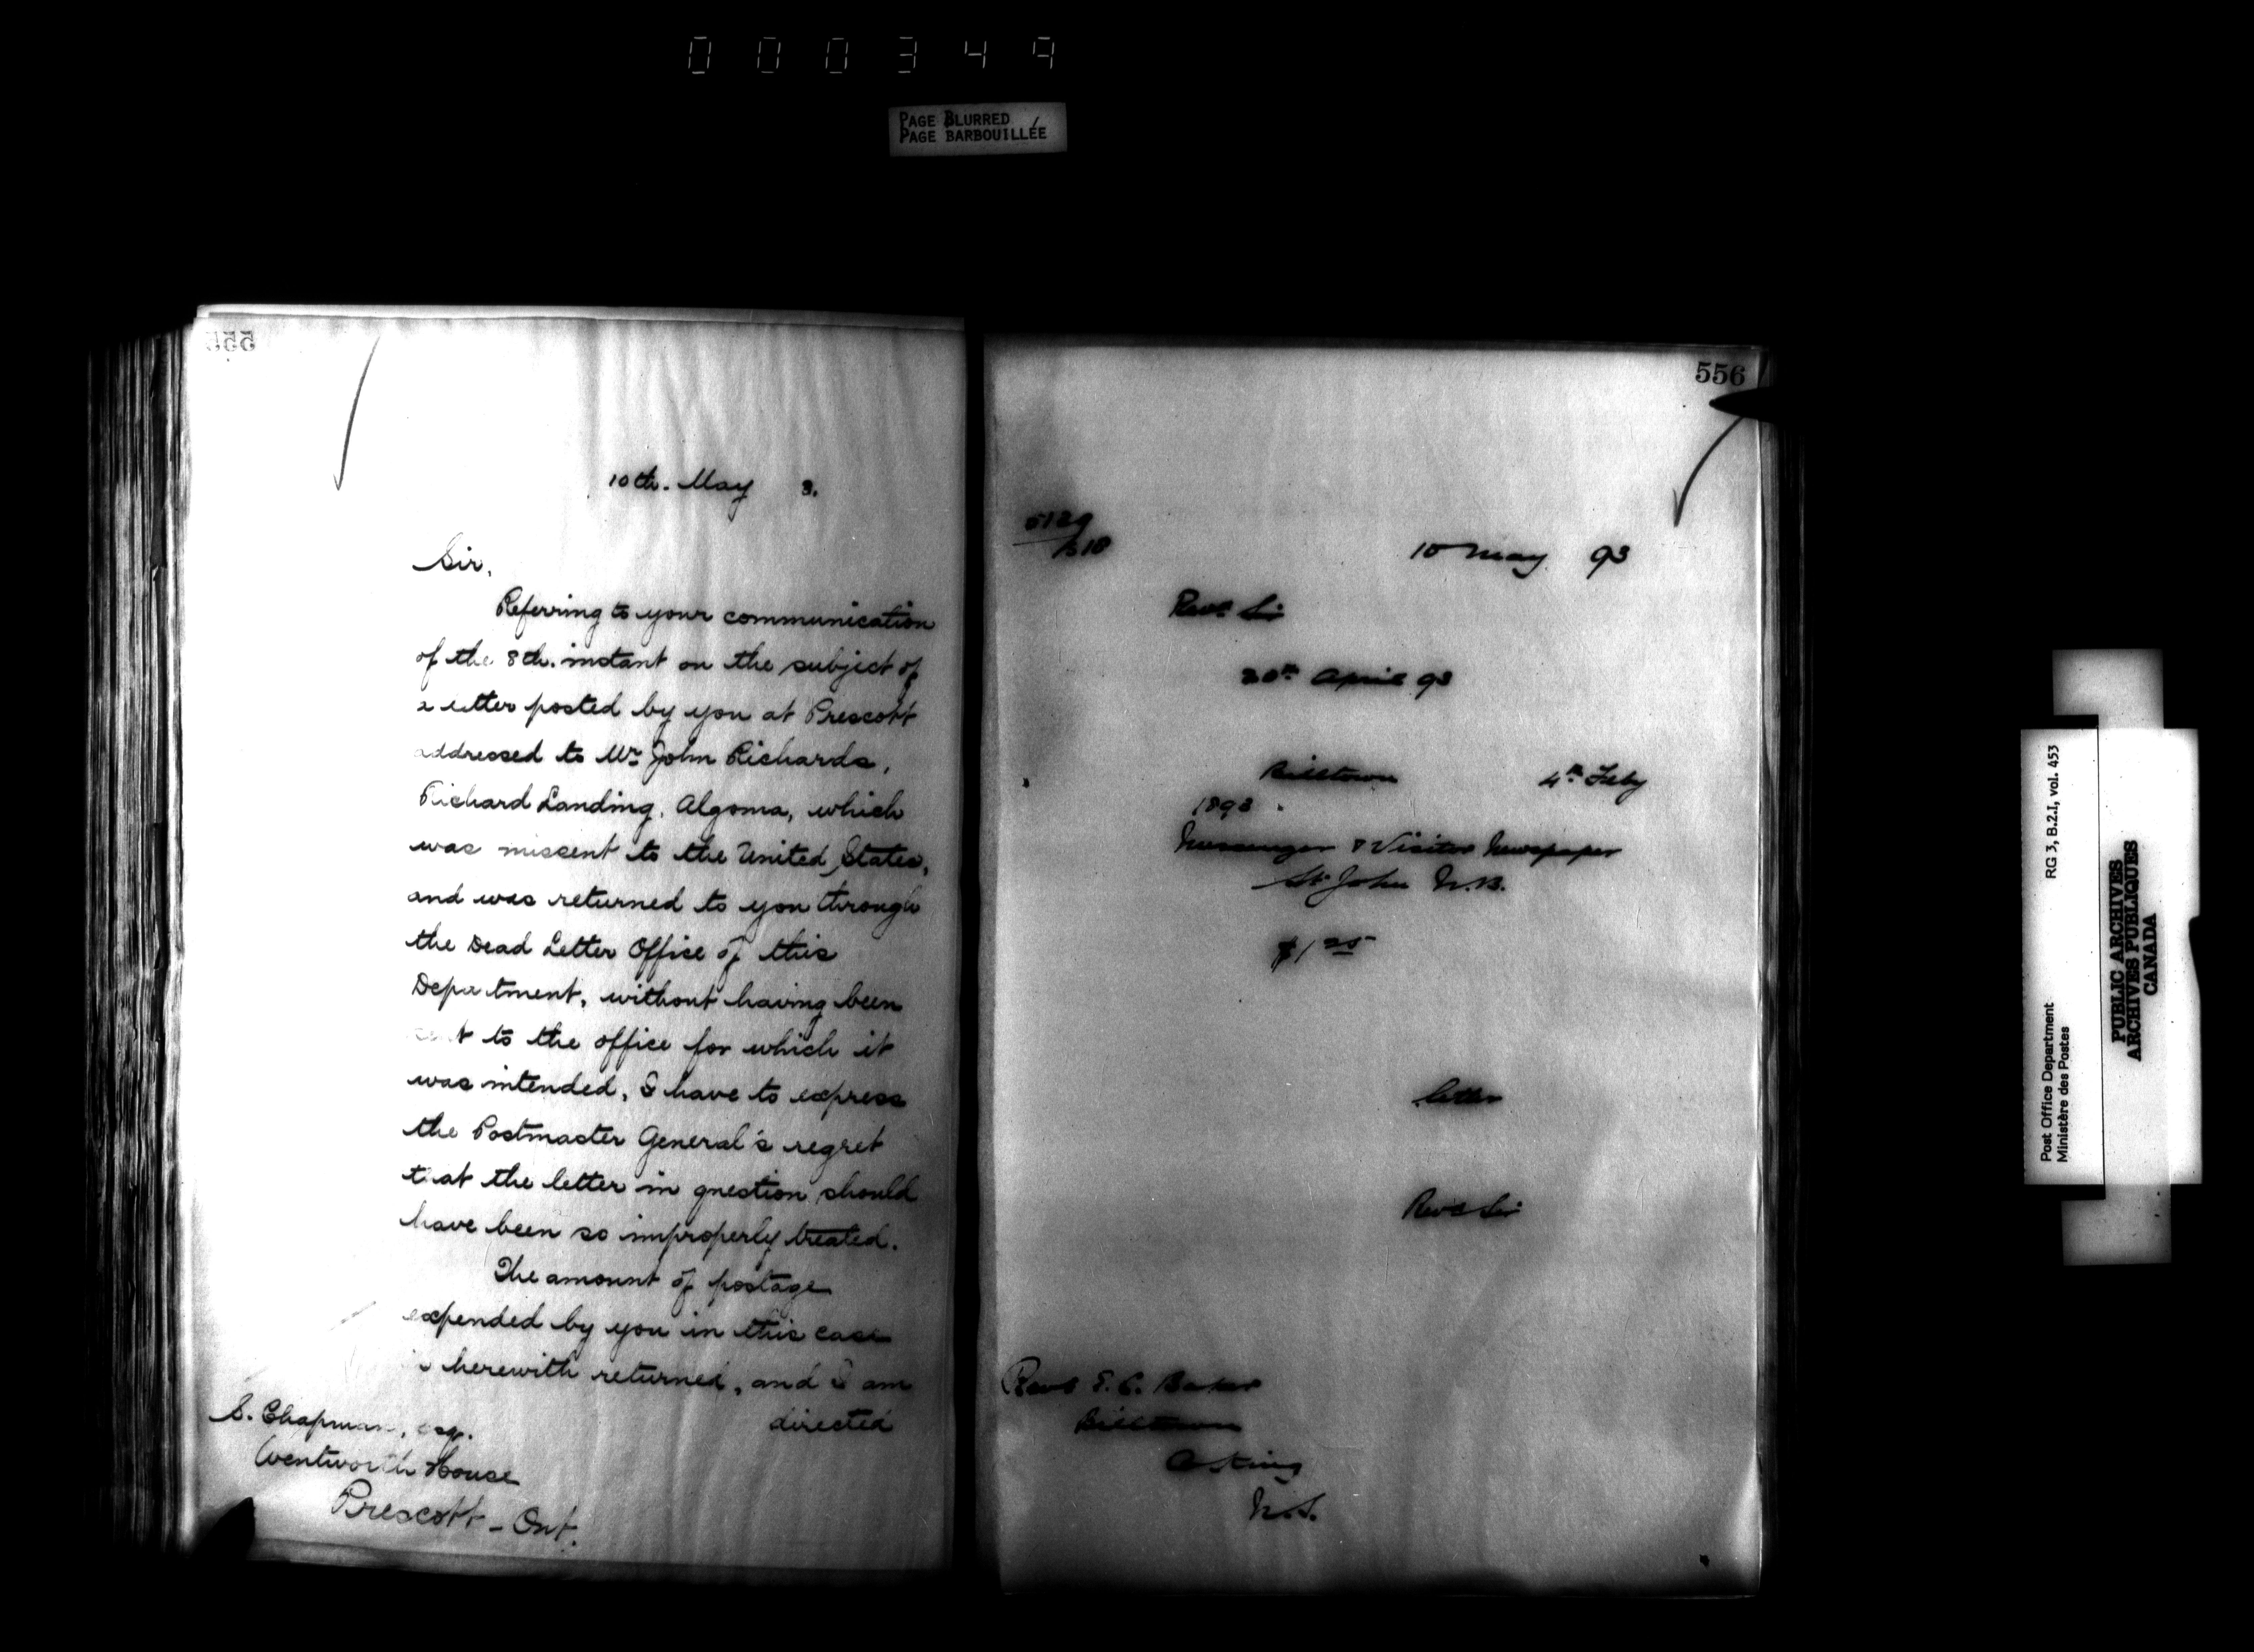 000349
PAGE BLURRED
PAGE BARBOUILLÉE
555
10th. May 3.
Sir,
Referring to your communication
of the 8th. instant on the subject of
a letter posted by you at Prescott
addressed to Mr. John Richards,
Richard Landing, Algoma, which
was missent to the United States,
and was returned to you through
the Dead Letter Office of this
Department, without having been
sent to the office for which it
was intended, I have to express
the Postmaster General's regret
that the letter in question should
have been so improperly treated.
The amount of postage
expended by you in this case
is herewith returned, and I am
directed
S. Chapman, esq.
Wentworth House
Prescott - Ont.
556
10 May 93
Revd. Sir
20th April 93
Billtown 4th Feby
1893
Messenger & Visitor Newspaper
St John N.B.
$1 25
letter
Revd Sir
Revd E. C. Baker
Billtown
Co Kings
N.S.
Post Office Department
Ministère des Postes
RG 3, B.2.I, vol. 453
PUBLIC ARCHIVES
ARCHIVES PUBLIQUES
CANADA